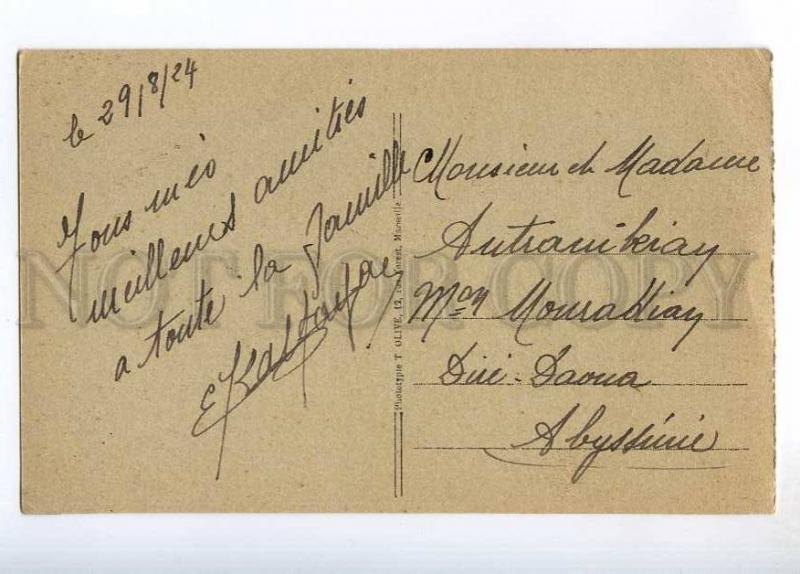 le 29/8/24
Tous mes
meilleurs amitiés
a toute la famille
Monsieur et Madame
Antranikian
Mon Mouradian
Diré-Daoua
Abyssinie
Phototypie T OLIVE, 12, rue Forest, Marseille
NOT FOR COPY